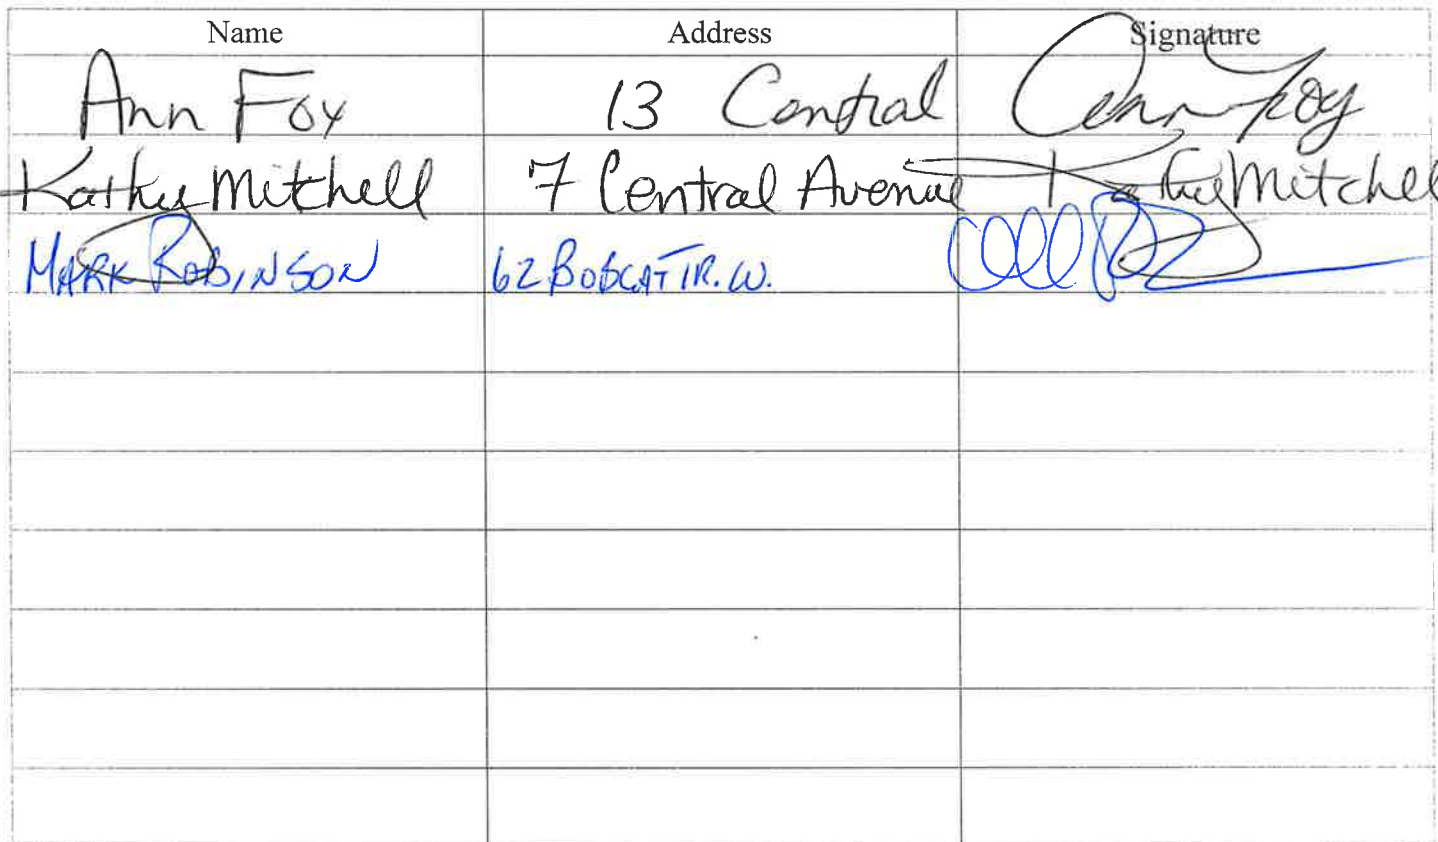 Name Address Signature
Ann Fox 13 Central Ann Fox
Kathy Mitchell 7 Central Avenue Kathy Mitchell
MARK ROBINSON 62 BOBCAT TR. W.